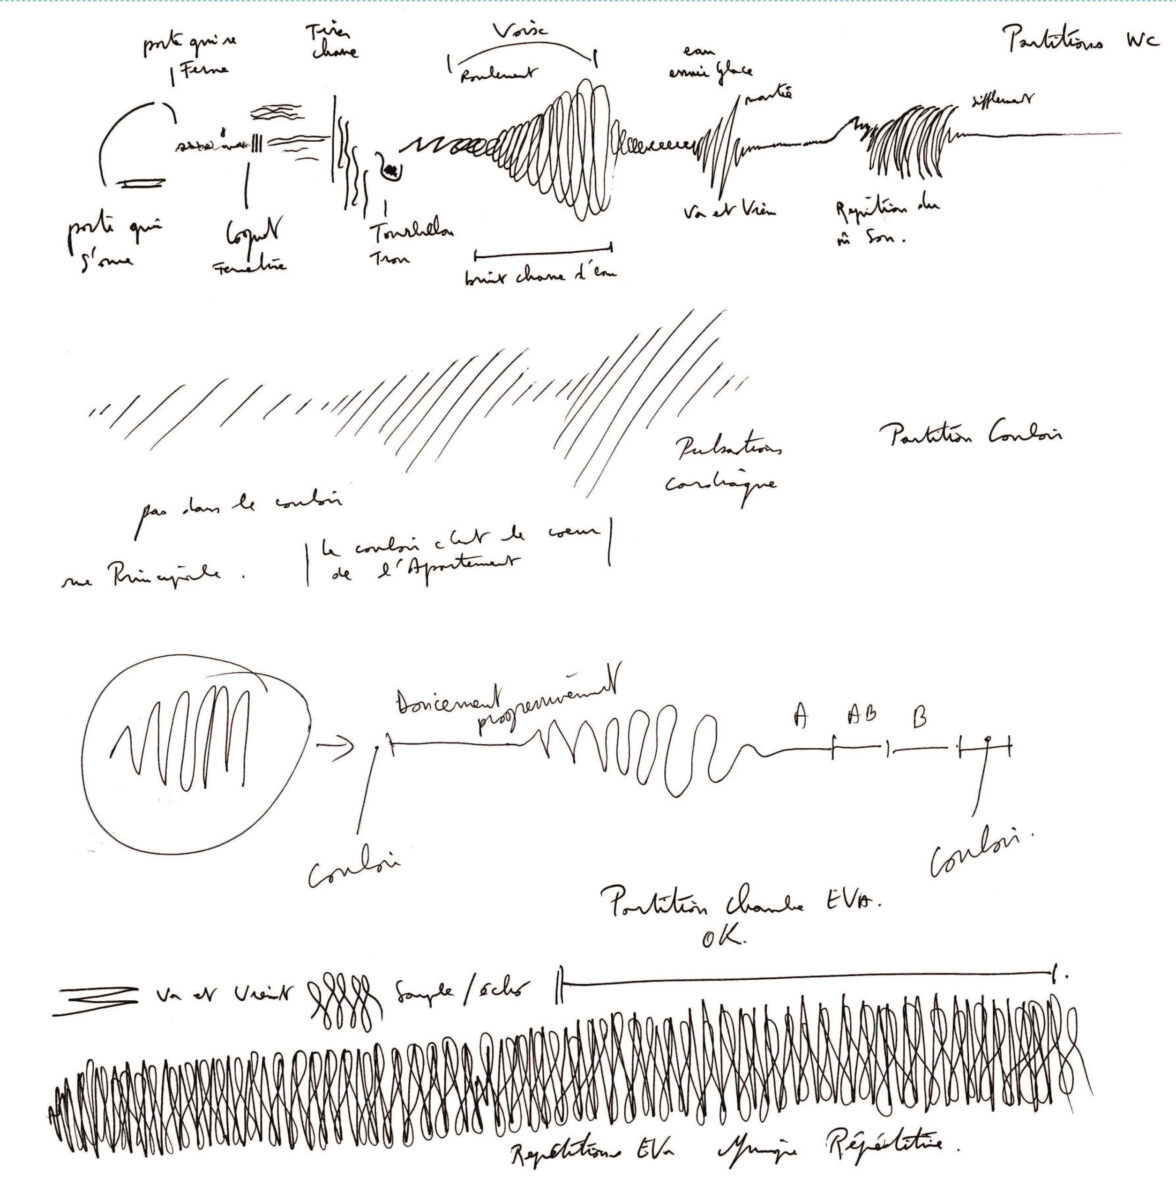 Partitions WC
porte qui se
Ferme
Tirer
chasse
Voisc
Roulement
eau
envie Glace
sifflement
porte qui
s'ouvre
Loquet
Fenêtre
Tourbillon
Trou
bruit chasse d'eau
Va et Vien
Repition du
m̂ Son.
Partition Couloir
Pulsations
cardiàque
pas dans le couloir
rue Principale.
Le couloir c'est le coeur
de l'Apartement
Doucement
progressivement
A AB B
Couloir
Couloir.
Partition Chambre EVA.
OK.
Va et Vient
Sample/écho
Repétitions EVA Musique Répétitive.